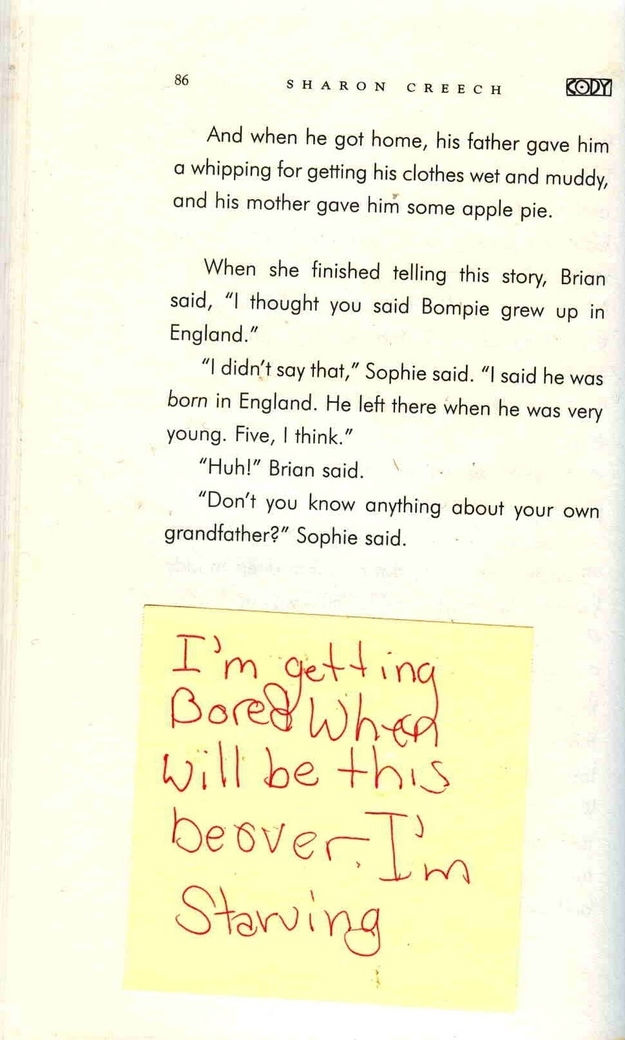 86 SHARON CREECH CODY
And when he got home, his father gave him
a whipping for getting his clothes wet and muddy,
and his mother gave him some apple pie.
When she finished telling this story, Brian
said, “I thought you said Bompie grew up in
England.”
“I didn’t say that,” Sophie said. “I said he was
born in England. He left there when he was very
young. Five, I think.”
“Huh!” Brian said.
“Don’t you know anything about your own
grandfather?” Sophie said.
I'm getting
Bored When
will be this
beover. I'm
Starving